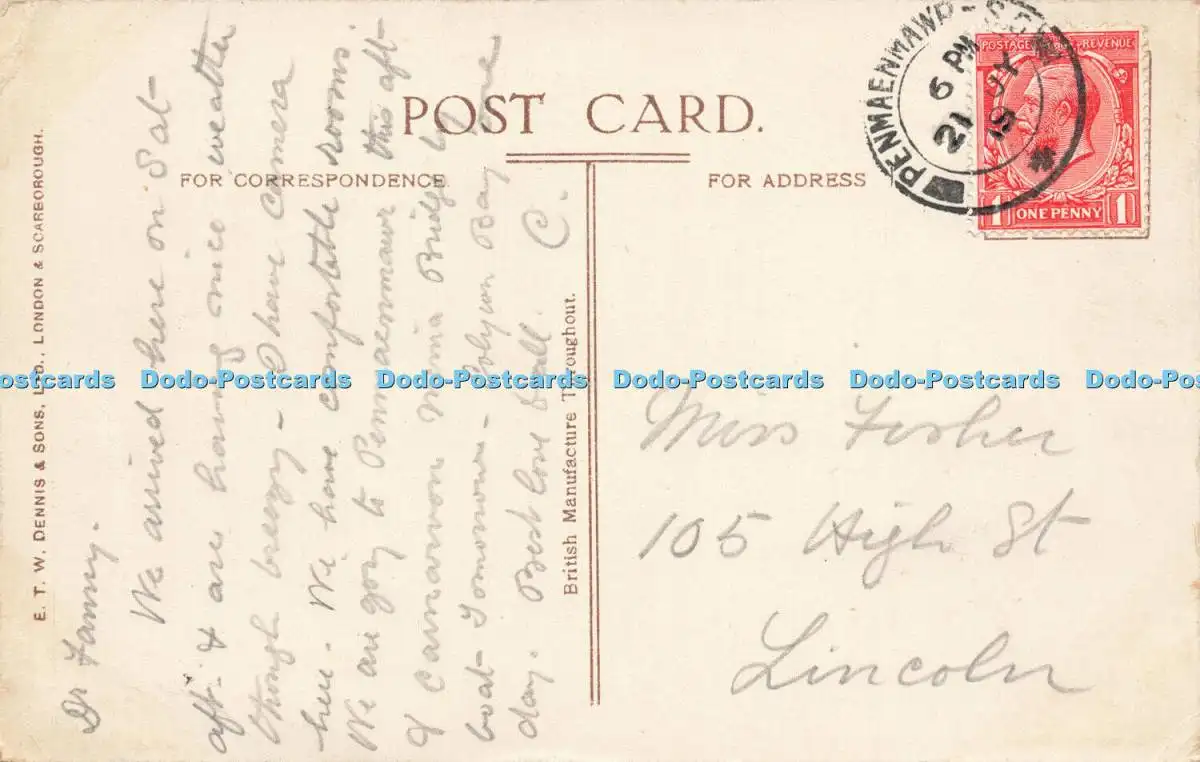 POST CARD.
FOR CORRESPONDENCE
FOR ADDRESS
E. T. W. DENNIS & SONS, LTD., LONDON & SCARBOROUGH.
British Manufacture Throughout.
PENMAENMAWR
6 PM
21 JY
19
POSTAGE REVENUE
1 ONE PENNY 1
Dr Fanny.
We arrived here on Sat-
aft. & are having nice weather
though breezy - I have camera
here. We have comfortable rooms
We are gog to Penmaenmawr this aft-
& Carnarvon Menia Bridge by
boat - Tomorrow - Colwyn Bay one
day. Best love to all C.
Miss Fisher
105 High St
Lincoln
Dodo-Postcards Dodo-Postcards Dodo-Postcards Dodo-Postcards Dodo-Postcards Dodo-Postcards